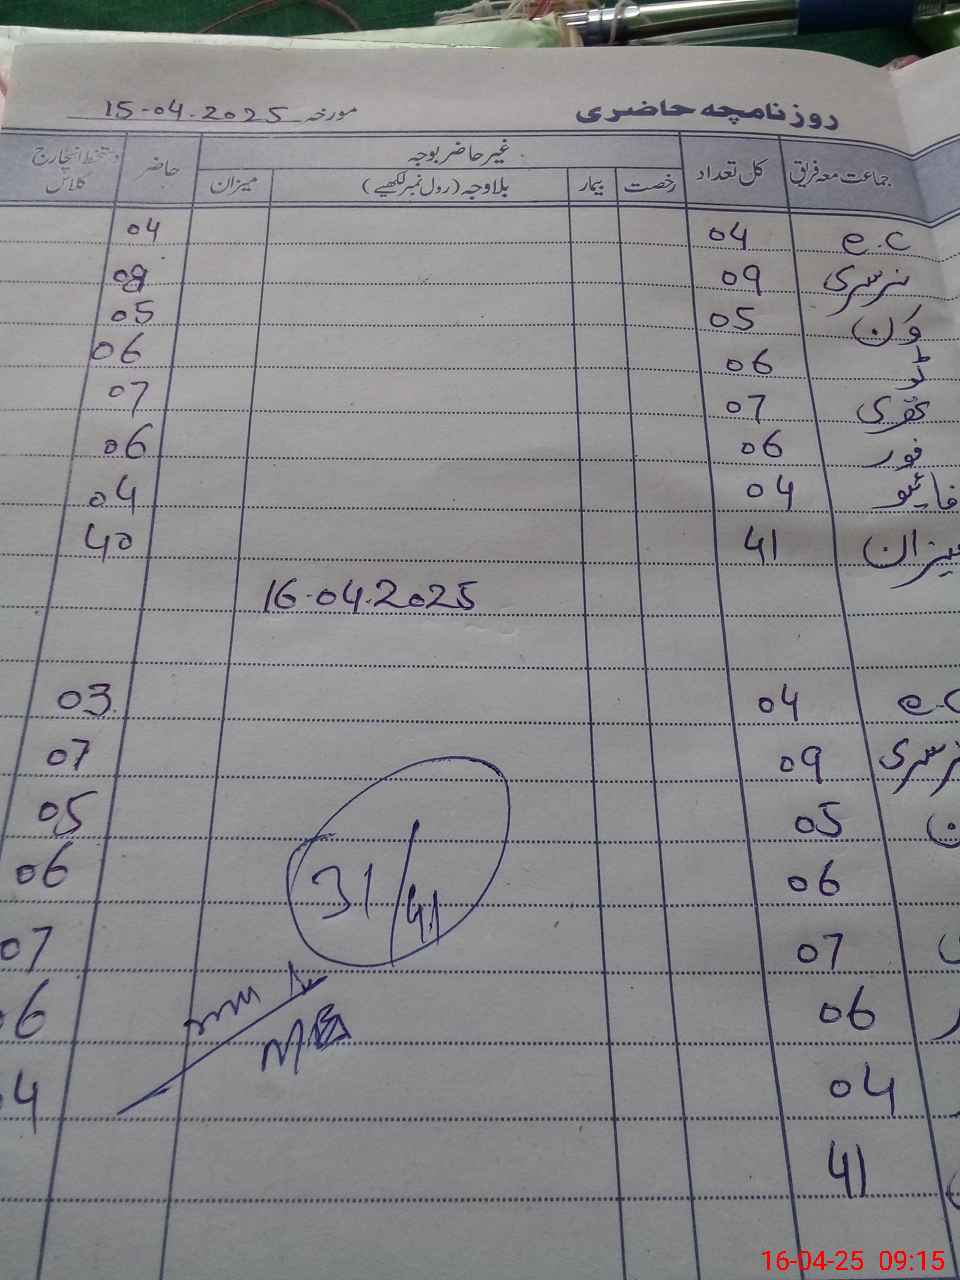 روزنامچہ حاضری مورخہ 15-04.2025
جماعت معہ فریق کل تعداد غیر حاضر بوجہ حاضر دستخط انچارج کلاس
رخصت بیمار بلاوجہ (رول نمبر لکھیے) میزان
e.c 04 04
نرسری 09
ون 05 05
ٹو 06 06
تھری 07 07
فور 06 06
فائیو 04 04
میزان 41 40
16.04.2025
e.c 04 03
نرسری 09 07
05 05
06 06
07 07
06 06
04 04
41
31/41
16-04-25 09:15